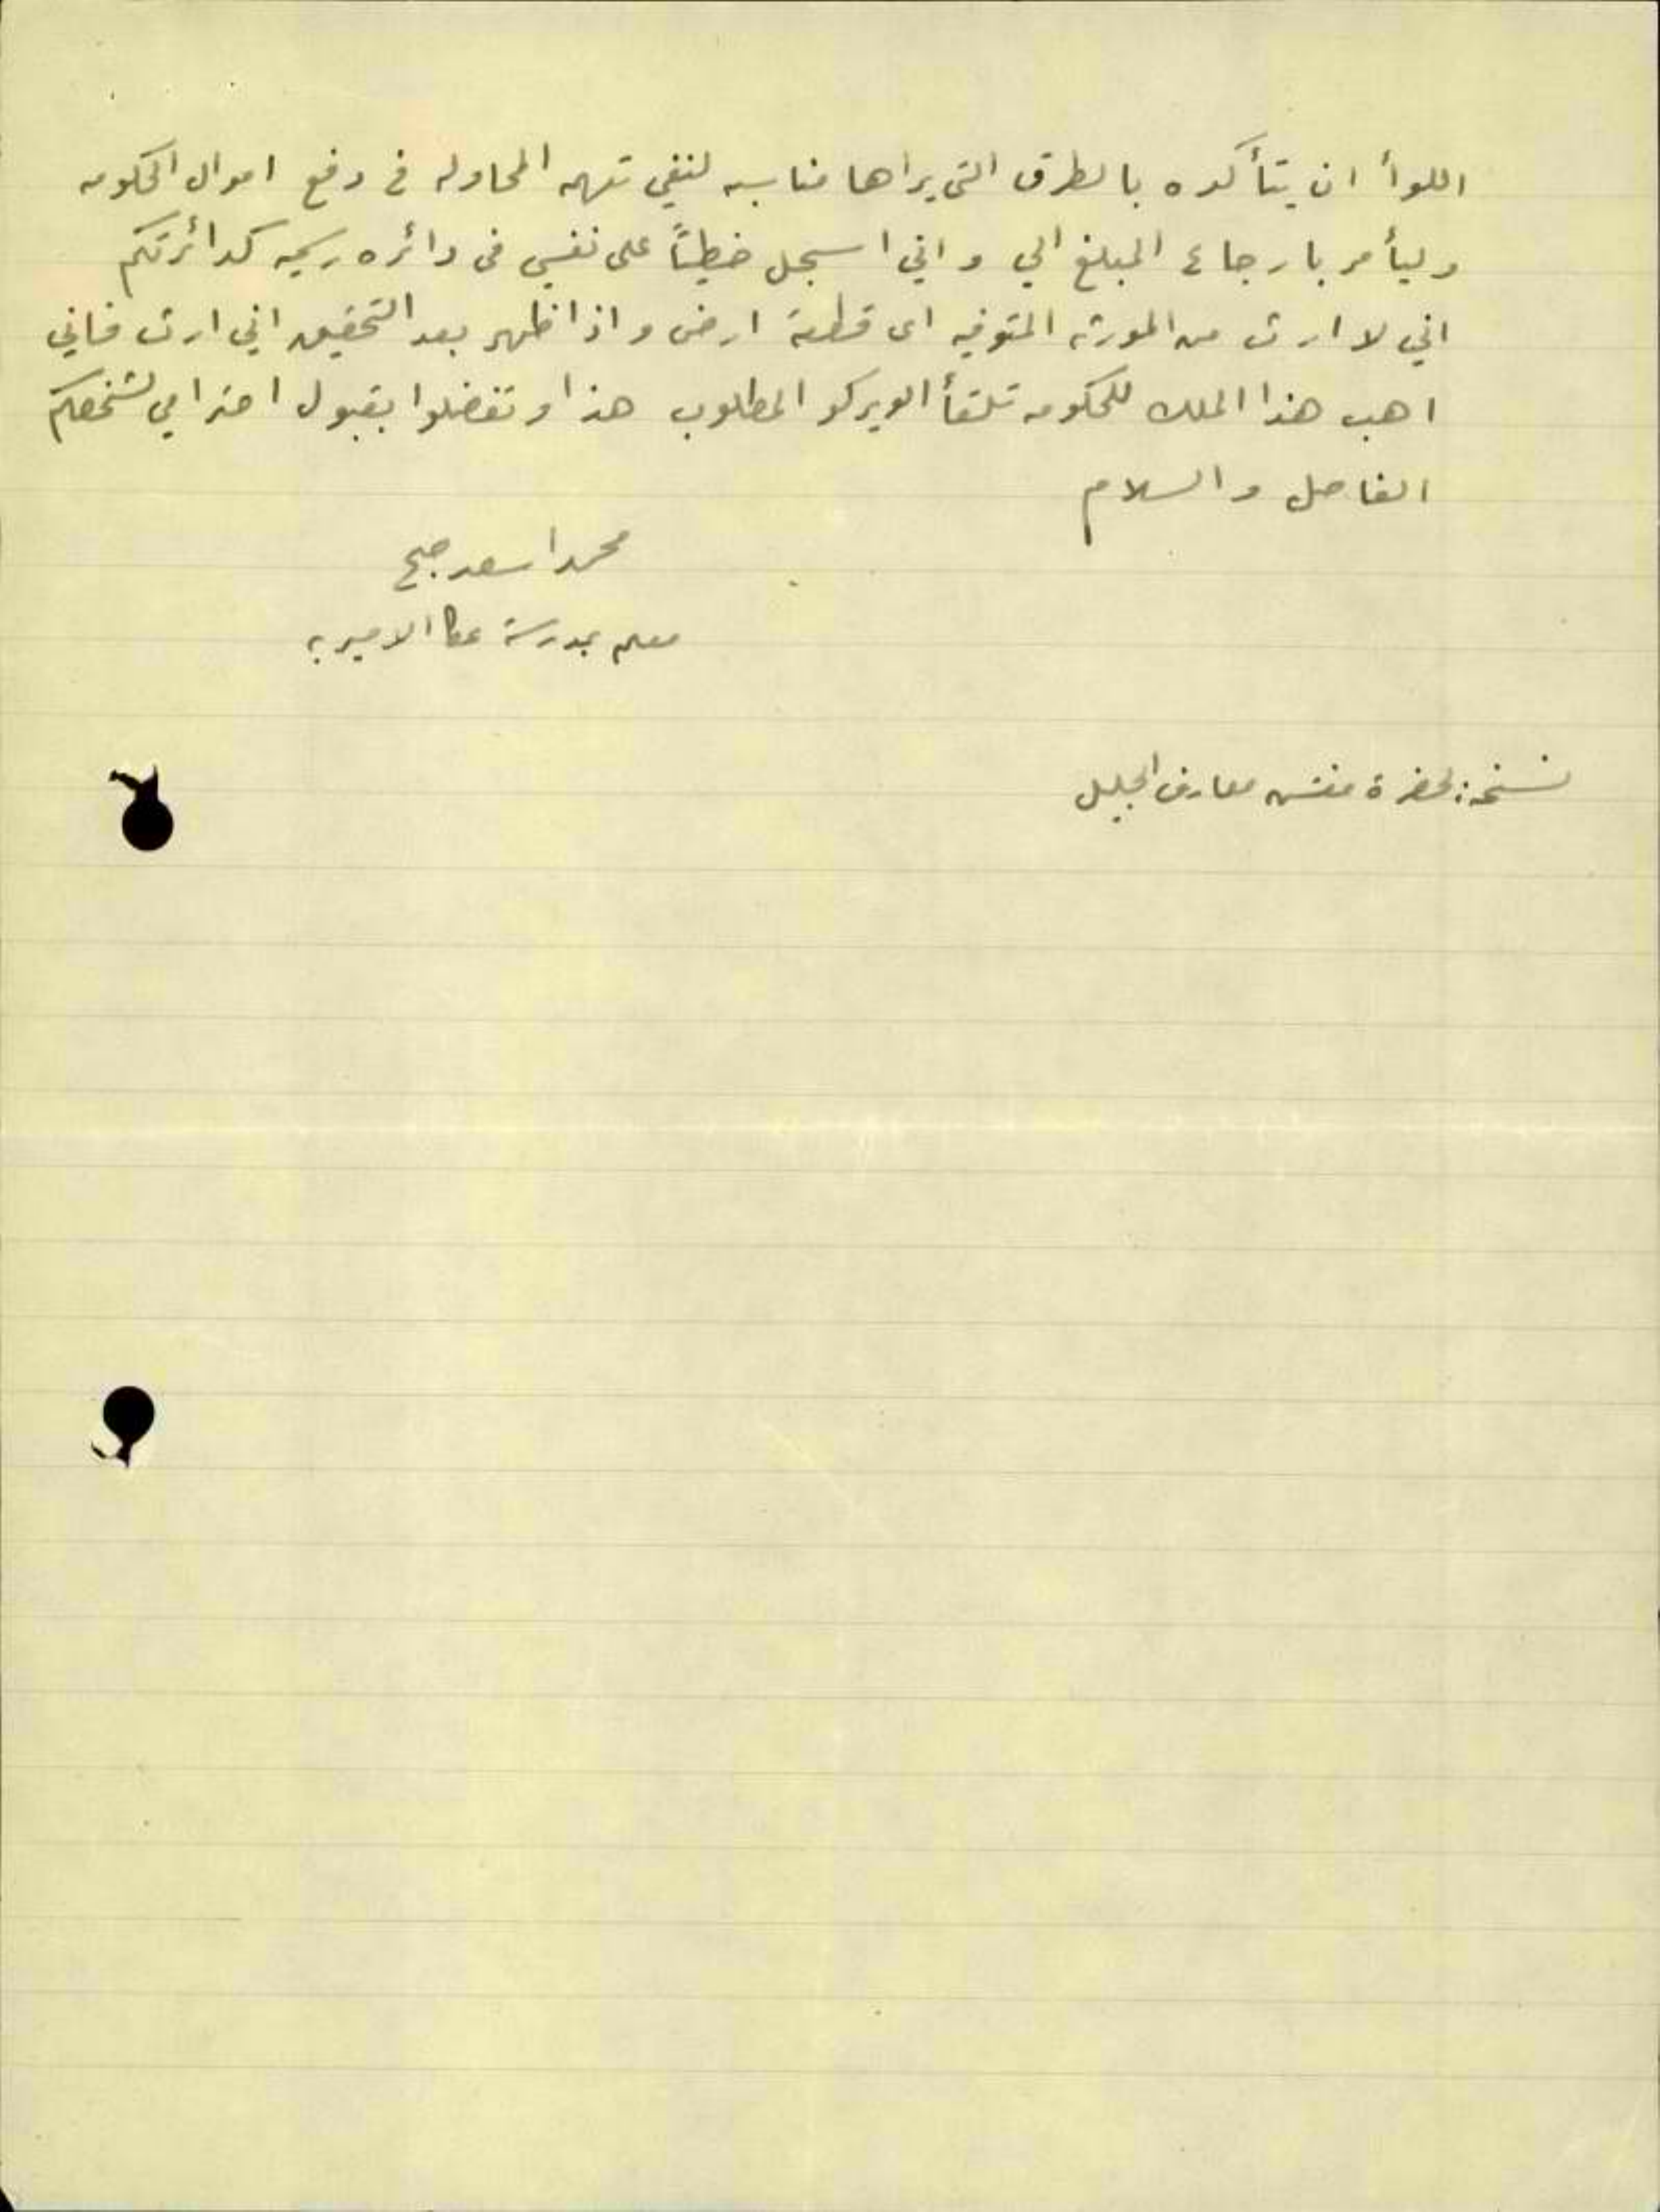 اللوأ ان يتأكده بالطرق التي يراها مناسبه لنفي تهمه المحاوله في دفع اموال الحكومه
وليأمر بارجاع المبلغ الي واني اسجل خطيًا على نفسي في دائره رسميه كدائرتكم
اني لا ارث من المورثه المتوفيه اي قطعة ارض واذا ظهر بعد التحقيق اني ارث فاني
اهب هذا الملك للحكومه تلقأ الويركو المطلوب هذا وتفضلوا بقبول احترامي لشخصكم
الفاضل والسلام
محمد اسعد
معلم بمدرسة عكا الاميريه
نسخة: لحضرة مفتش معارف الجليل